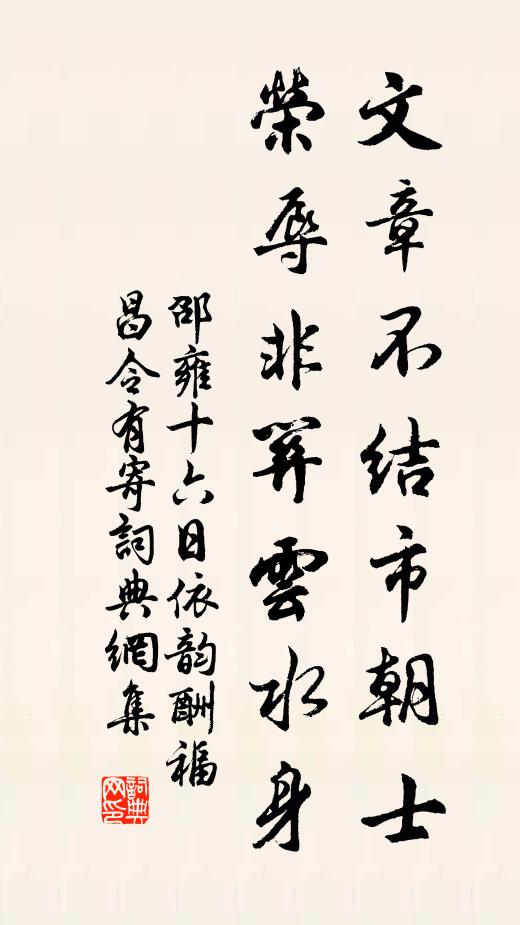 文章不结市朝士
榮辱非關雲水身
邵雍十六日依韵酬福
昌令有寄詞典網集
詞典網印